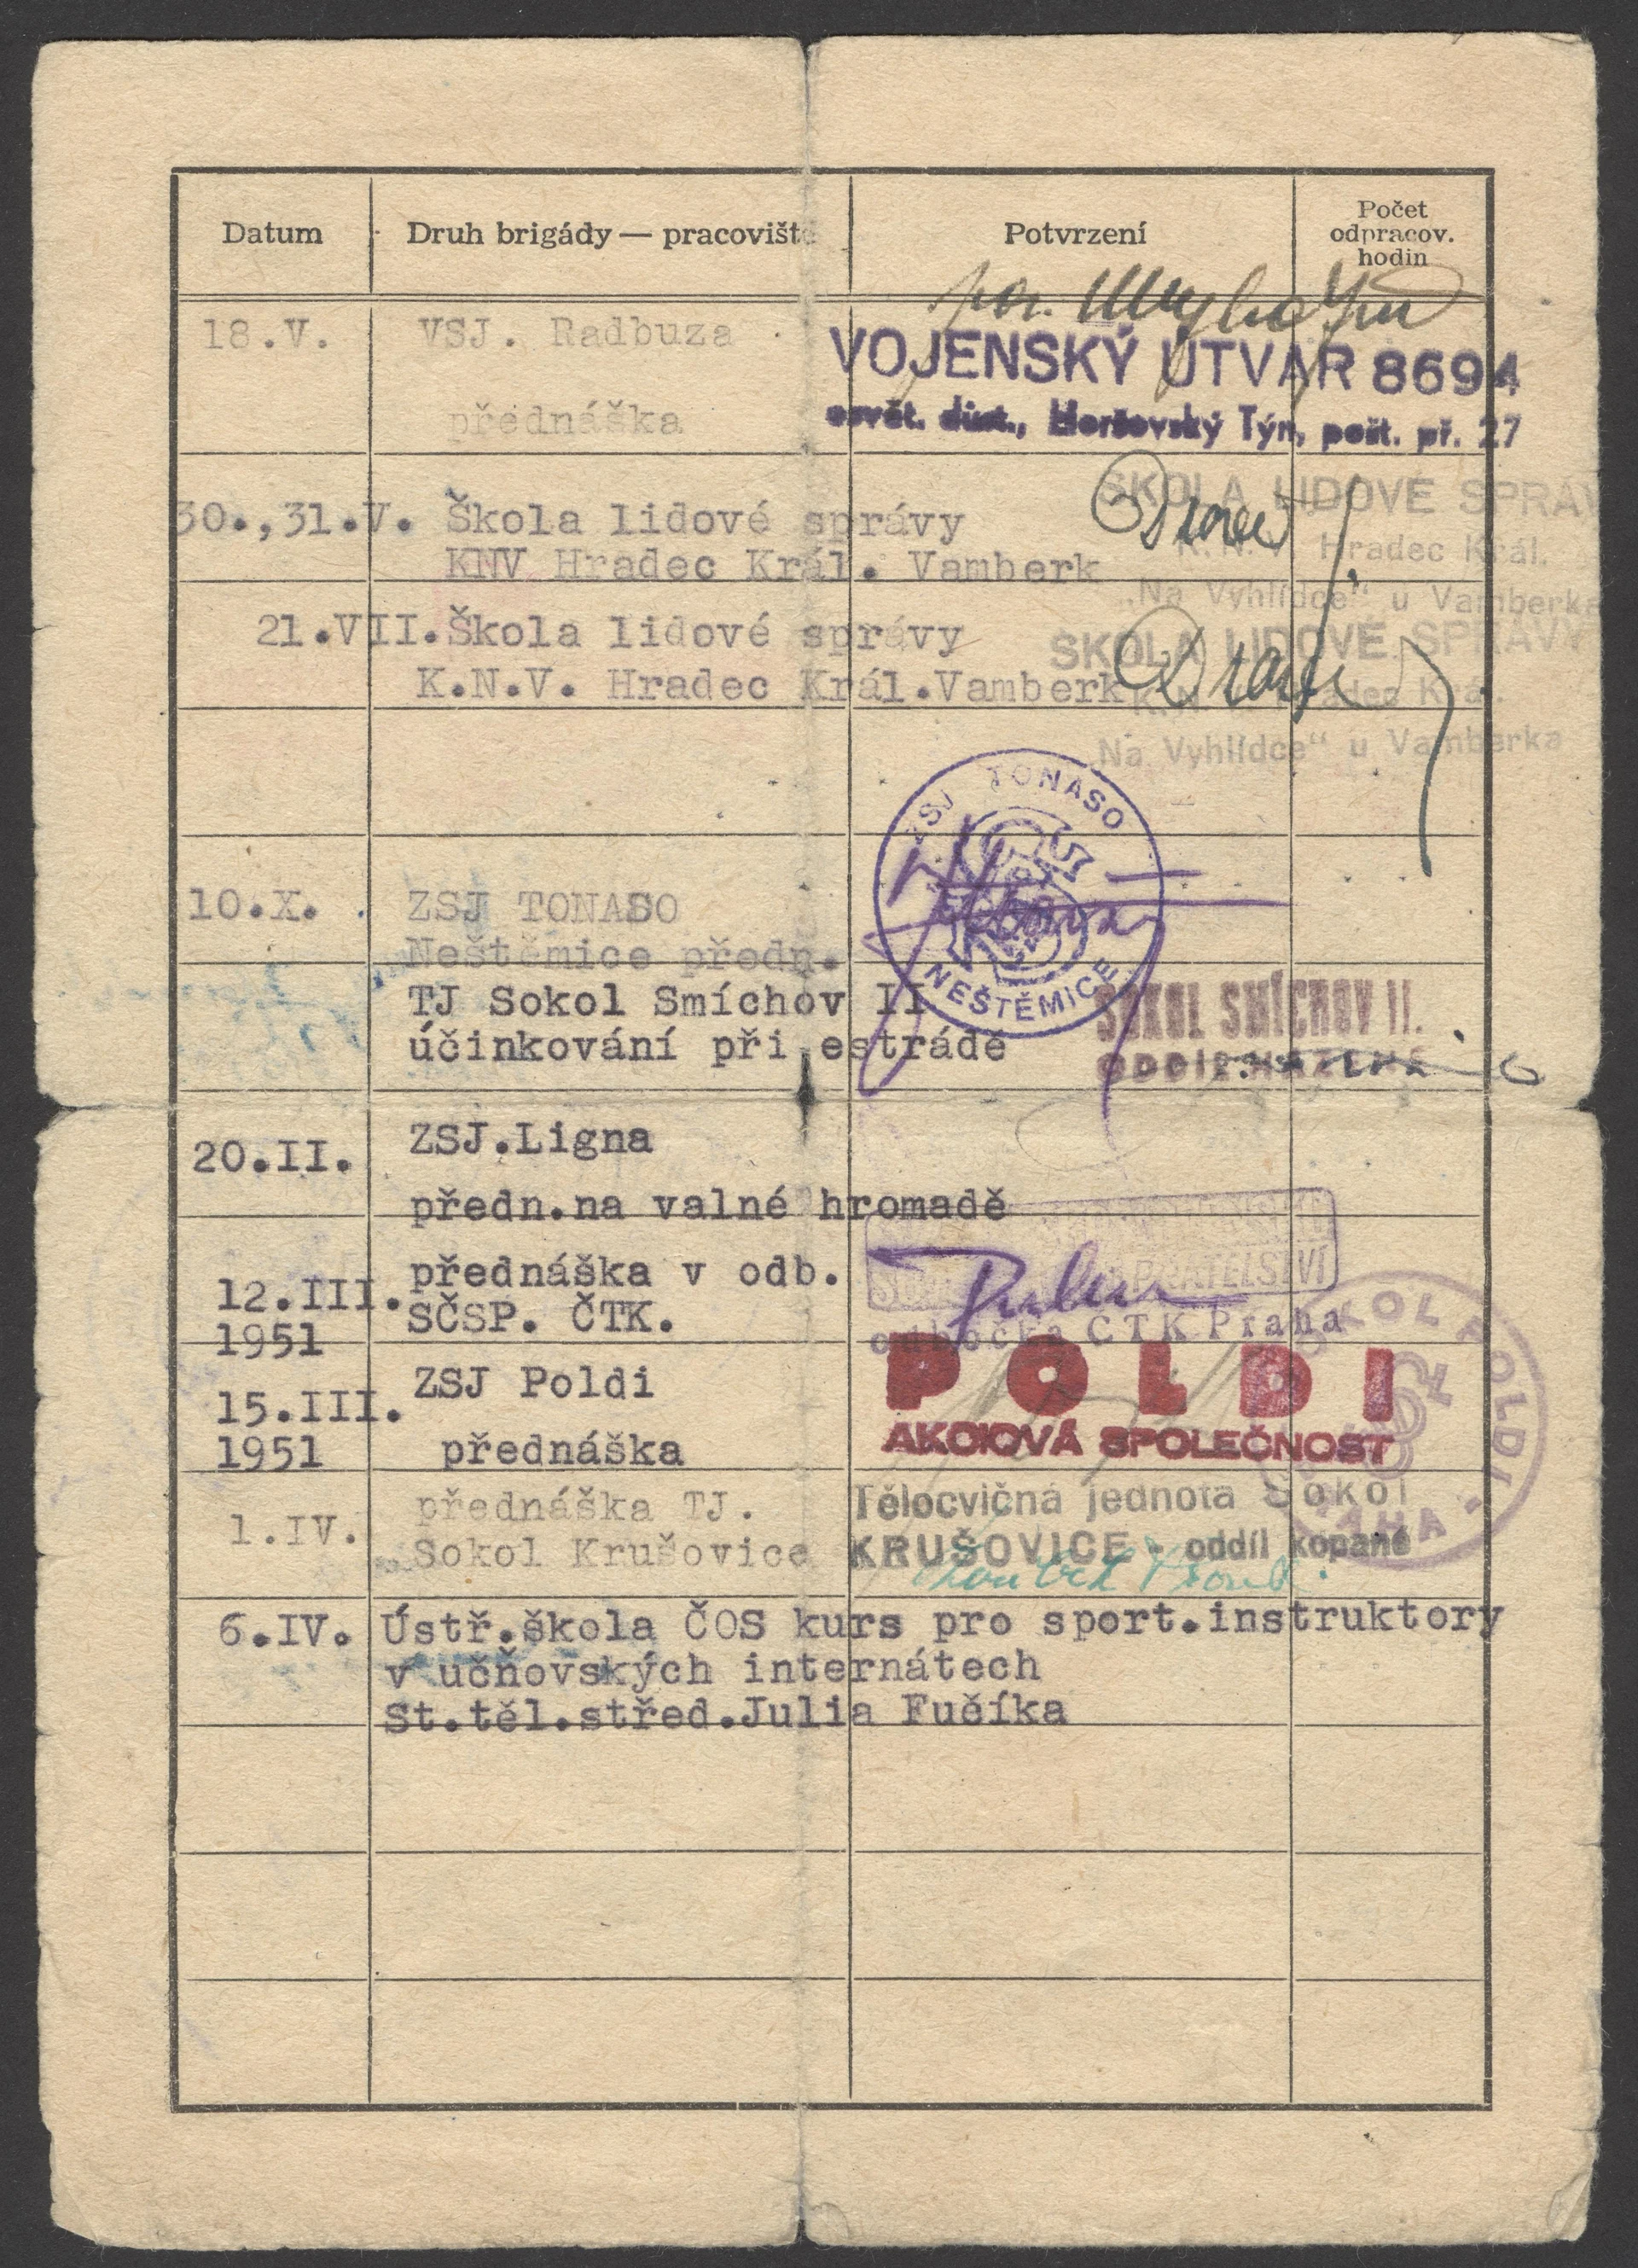 Datum Druh brigády — pracoviště Potvrzení Počet odpracov. hodin
por.
18.V. VSJ. Radbuza
VOJENSKÝ ÚTVAR 8694
přednáška
osvět. důst., Horšovský Týn, pošt. př. 27
30.,31.V. Škola lidové správy
KNV Hradec Král. Vamberk
ŠKOLA LIDOVÉ SPRÁV
K.N.V. Hradec Král.
„Na Vyhlídce" u Vamberka
21.VII. Škola lidové správy
K.N.V. Hradec Král.Vamberk
ŠKOLA LIDOVÉ SPRÁVY
K.N.V. Hradec Král.
„Na Vyhlídce" u Vamberka
ZSJ TONASO
NEŠTĚMICE
10.X. ZSJ TONASO
Neštěmice předn.
TJ Sokol Smíchov II
účinkování při estrádě
SOKOL SMÍCHOV II.
ODDÍL HÁZENÉ
20.II. ZSJ.Ligna
předn.na valné hromadě
12.III. přednáška v odb.
1951 SČSP. ČTK.
PŘÁTELSTVÍ
odbočka ČTK Praha
15.III. ZSJ Poldi
1951 přednáška
POLDI
AKCIOVÁ SPOLEČNOST
SOKOL POLDI
PRAHA
1.IV. přednáška TJ.
Sokol Krušovice
Tělocvičná jednota Sokol
KRUŠOVICE - oddíl kopané
6.IV. Ústř.škola ČOS kurs pro sport.instruktory
v učňovských internátech
St.těl.střed.Julia Fučíka